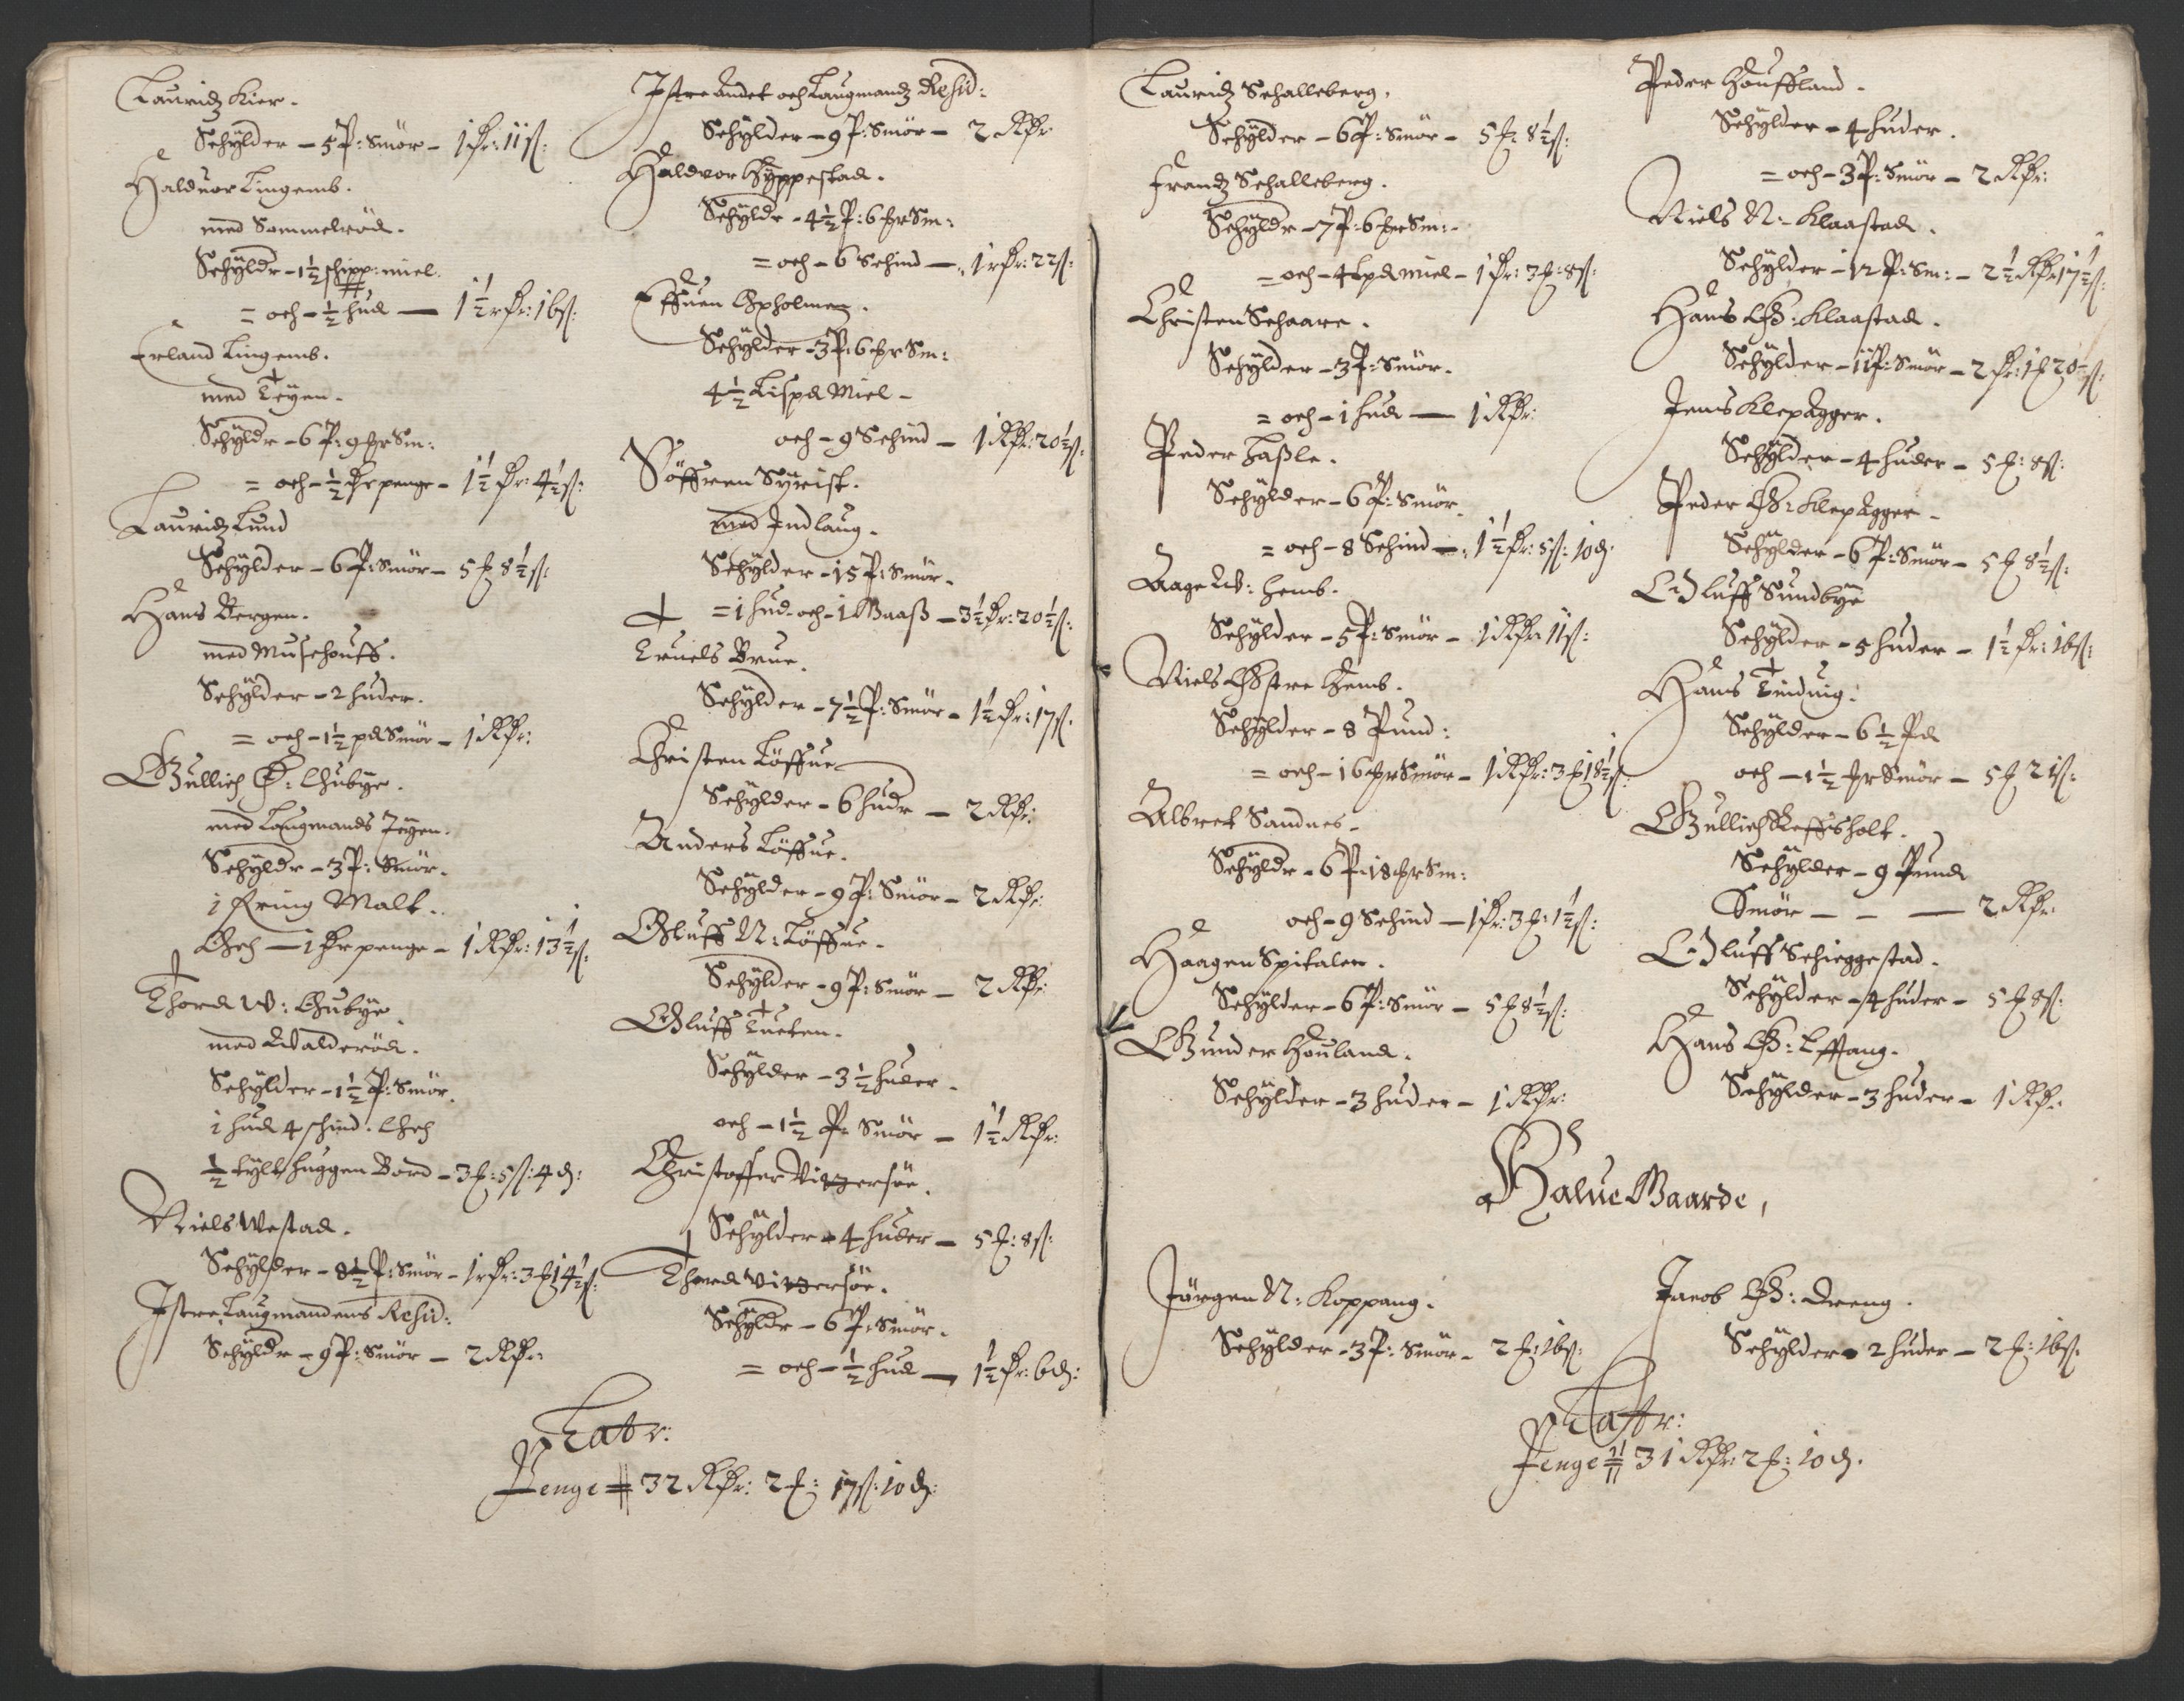 Lauridz Kier.
Schÿlder - 5 P: Smör - 1 Rr: 11 ß:
Haldvor Lingemb.
med Sommelröd.
Schÿldr - 1½ schipp: miel.
= och - ½ hud - 1½ rdr: 16 ß:
Erland Lingemb.
med Teÿen.
Schÿldr - 6 P: 9 mr Sm:
= och - ½ mr penge - 1½ dr: 4½ ß:
Lauridz Lund
Schÿlder - 6 P: Smör - 5 # 8½ ß:
Hans Bergen.
med Musehouff.
Schÿlder - 2 huder.
= och - 1½ pd Smör - 1 Rdr:
Gullich Ø: Hubÿe.
med Laugmands Jeÿen.
Schÿldr - 3 P: Smör.
1 Fring Malt.
Och - 1 mr penge - 1 Rdr: 13½ ß:
Thord W: Hubÿe.
med Walderöd.
Schÿlder - 1½ P: Smör.
1 hud 4 schind. Och
½ tÿlt huggen Bord - 3 #: 5 ß: 4 d:
Niels Westad.
Schÿlder - 8½ P: Smör - 1 rdr: 3 # 14½ ß:
Istre Laugmandens Resid:
Schÿldr - 9 P: Smör - 2 Rdr:
Istre Andet och Laugmandz Resid:
Schÿlder - 9 P: Smör - 2 Rdr
Haldvor Hÿppestad.
Schÿldr - 4½ P: 6 mr Sm:
= och - 6 Schind - 1 rdr: 22 ß:
Effuen Opholmen.
Schÿlder - 3 P: 6 mr Sm:
4½ Lispd Miel -
och - 9 Schind - 1 Rdr: 20½ ß:
Söffren Sÿrist.
med Indlaug.
Schÿlder - 15 P: Smör.
= 1 hud - och - 1 Maaß - 3½ dr: 20½ ß:
Truels Brue.
Schÿlder - 7½ P: Smör - 1½ dr: 17 ß:
Christen Löffue
Schÿlder - 6 hudr - 2 Rdr:
Anders Löffue.
Schÿlder - 9 P: Smör - 2 Rdr:
Oluff N: Löffue.
Schÿlder - 9 P: Smör - 2 Rdr:
Oluff Tueten.
Schÿlder - 3½ huder.
och - 1½ P: Smör - 1½ Rdr:
Christoffer Vitzersöe.
Schÿlder - 4 huder - 5 #: 8 ß:
Thord Vitzersöe.
Schÿldr - 6 P: Smör.
= och - ½ hud - 1½ dr: 6 d:
Latr:
Penge 32 Rdr: 2 #: 17 ß: 10 d:
Lauridz Schalleberg.
Schÿlder - 6 P: Smör - 5 # 8½ ß:
Frandz Schalleberg.
Schÿldr - 7 P: 6 mr Sm:
= och - 4 Lpd miel - 1 dr: 3 #: 8 ß:
Christen Schaare.
Schÿlder - 3 P: Smör.
= och - 1 hud - 1 Rdr:
Peder Haßle.
Schÿlder - 6 P: Smör
= och - 8 Schind - 1½ dr: 5 ß: 10 d:
Aage W: Hemb.
Schÿlder - 5 P: Smör - 1 Rdr 11 ß:
Niels Østre Hemb.
Schÿlder - 8 Pund:
= och - 16 mr Smör - 1 Rdr: 3 # 18½ ß:
Albret Sandnes.
Schÿldr - 6 P: 18 mr Sm:
och - 9 Schind - 1 dr: 3 #: 1½ ß:
Haagen Spitalen.
Schÿlder - 6 P: Smör - 5 # 8½ ß:
Gunder Houland.
Schÿlder - 3 huder - 1 Rdr:
Peder Houffland.
Schÿlder - 4 huder.
= och - 3 P: Smör - 2 Rdr:
Niels N: Klaastad.
Schÿlder - 12 P: Sm: - 2½ Rdr 17½ ß:
Hans Ø: Klaastad.
Schÿlder - 11 P: Smör - 2 dr: 1 # 20½ ß:
Jens Klepagger.
Schÿlder - 4 huder - 5 #: 8 ß:
Peder Ø: Klepagger.
Schÿlder - 6 P: Smör - 5 # 8½ ß:
Oluff Sundbÿe
Schÿlder - 5 huder - 1½ dr: 16 ß:
Hans Tinduig:
Schÿlder - 6½ Pd
och - 1½ mr Smör - 5 # 21 ß:
Gullich Reffsholt.
Schÿlder - 9 Pund
Smör - - - 2 Rdr:
Oluff Schieggestad.
Schÿlder - 4 huder - 5 # 8 ß:
Hans Ø: Efftang.
Schÿlder - 3 huder - 1 Rdr:
Halue Gaarde,
Jörgen N: Koppang.
Schÿlder - 3 P: Smör - 2 #: 16 ß:
Jacob Ø: Dreng.
Schÿlder 2 huder - 2 #: 16 ß:
Lattr:
Penge 31 Rdr: 2 #: 10 d.